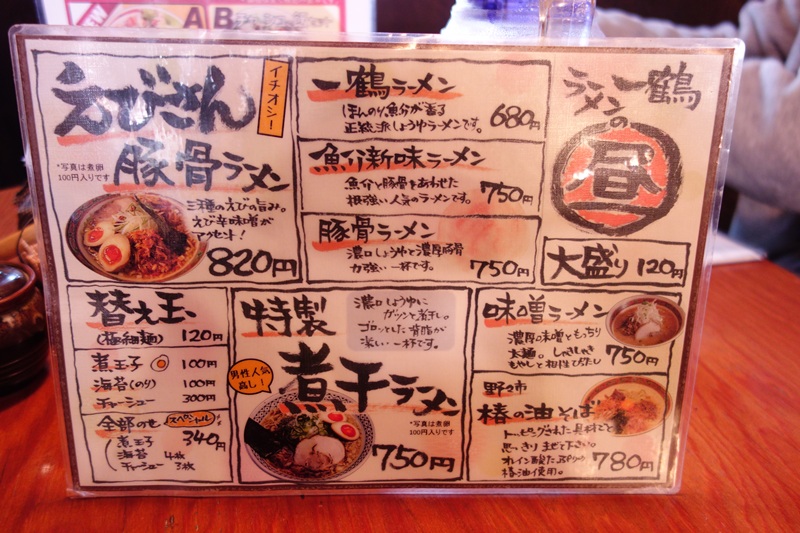 A B
えびさん
イチオシ!
豚骨ラーメン
*写真は煮卵
100円入りです
三種のえびの旨み。
えび辛味噌が
アクセント!
820円
一鶴ラーメン
ほんのり魚介が香る
正統派しょうゆラーメンです。
680円
魚介新味ラーメン
魚介と豚骨をあわせた
根強い人気のラーメンです。
750円
豚骨ラーメン
濃口しょうゆと濃厚豚骨
力強い一杯です。
750円
ラーメン一鶴
の
昼
大盛り 120円
替え玉
(極細麺) 120円
煮玉子 100円
海苔(のり) 100円
チャーシュー 300円
全部のせ スペシャル
340円
煮玉子
海苔 4枚
チャーシュー 3枚
特製
濃口しょうゆに
ガツンと煮干し。
ゴロッとした背脂が
激しい一杯です。
男性人気
高し!
煮干ラーメン
*写真は煮卵
100円入りです
750円
味噌ラーメン
濃厚の味噌ともっちり
太麺。しゃきしゃき
もやしと相性ぴったし
750円
野々市
椿の油そば
トッピングされた具材ごと
思っきりまぜて下さい。
オレイン酸たっぷりの
椿油使用。
780円